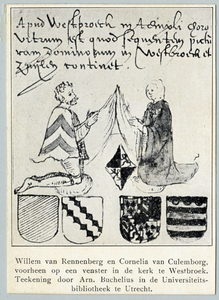 Apud Westbroeck in Templi choro
vitrum est quod sequentem pictu
ram Dominorum in Westbroeck et
Zuijlen continet.
Willem van Rennenberg en Cornelia van Culemborg,
voorheen op een venster in de kerk te Westbroek.
Teekening door Arn. Buchelius in de Universiteits-
bibliotheek te Utrecht.